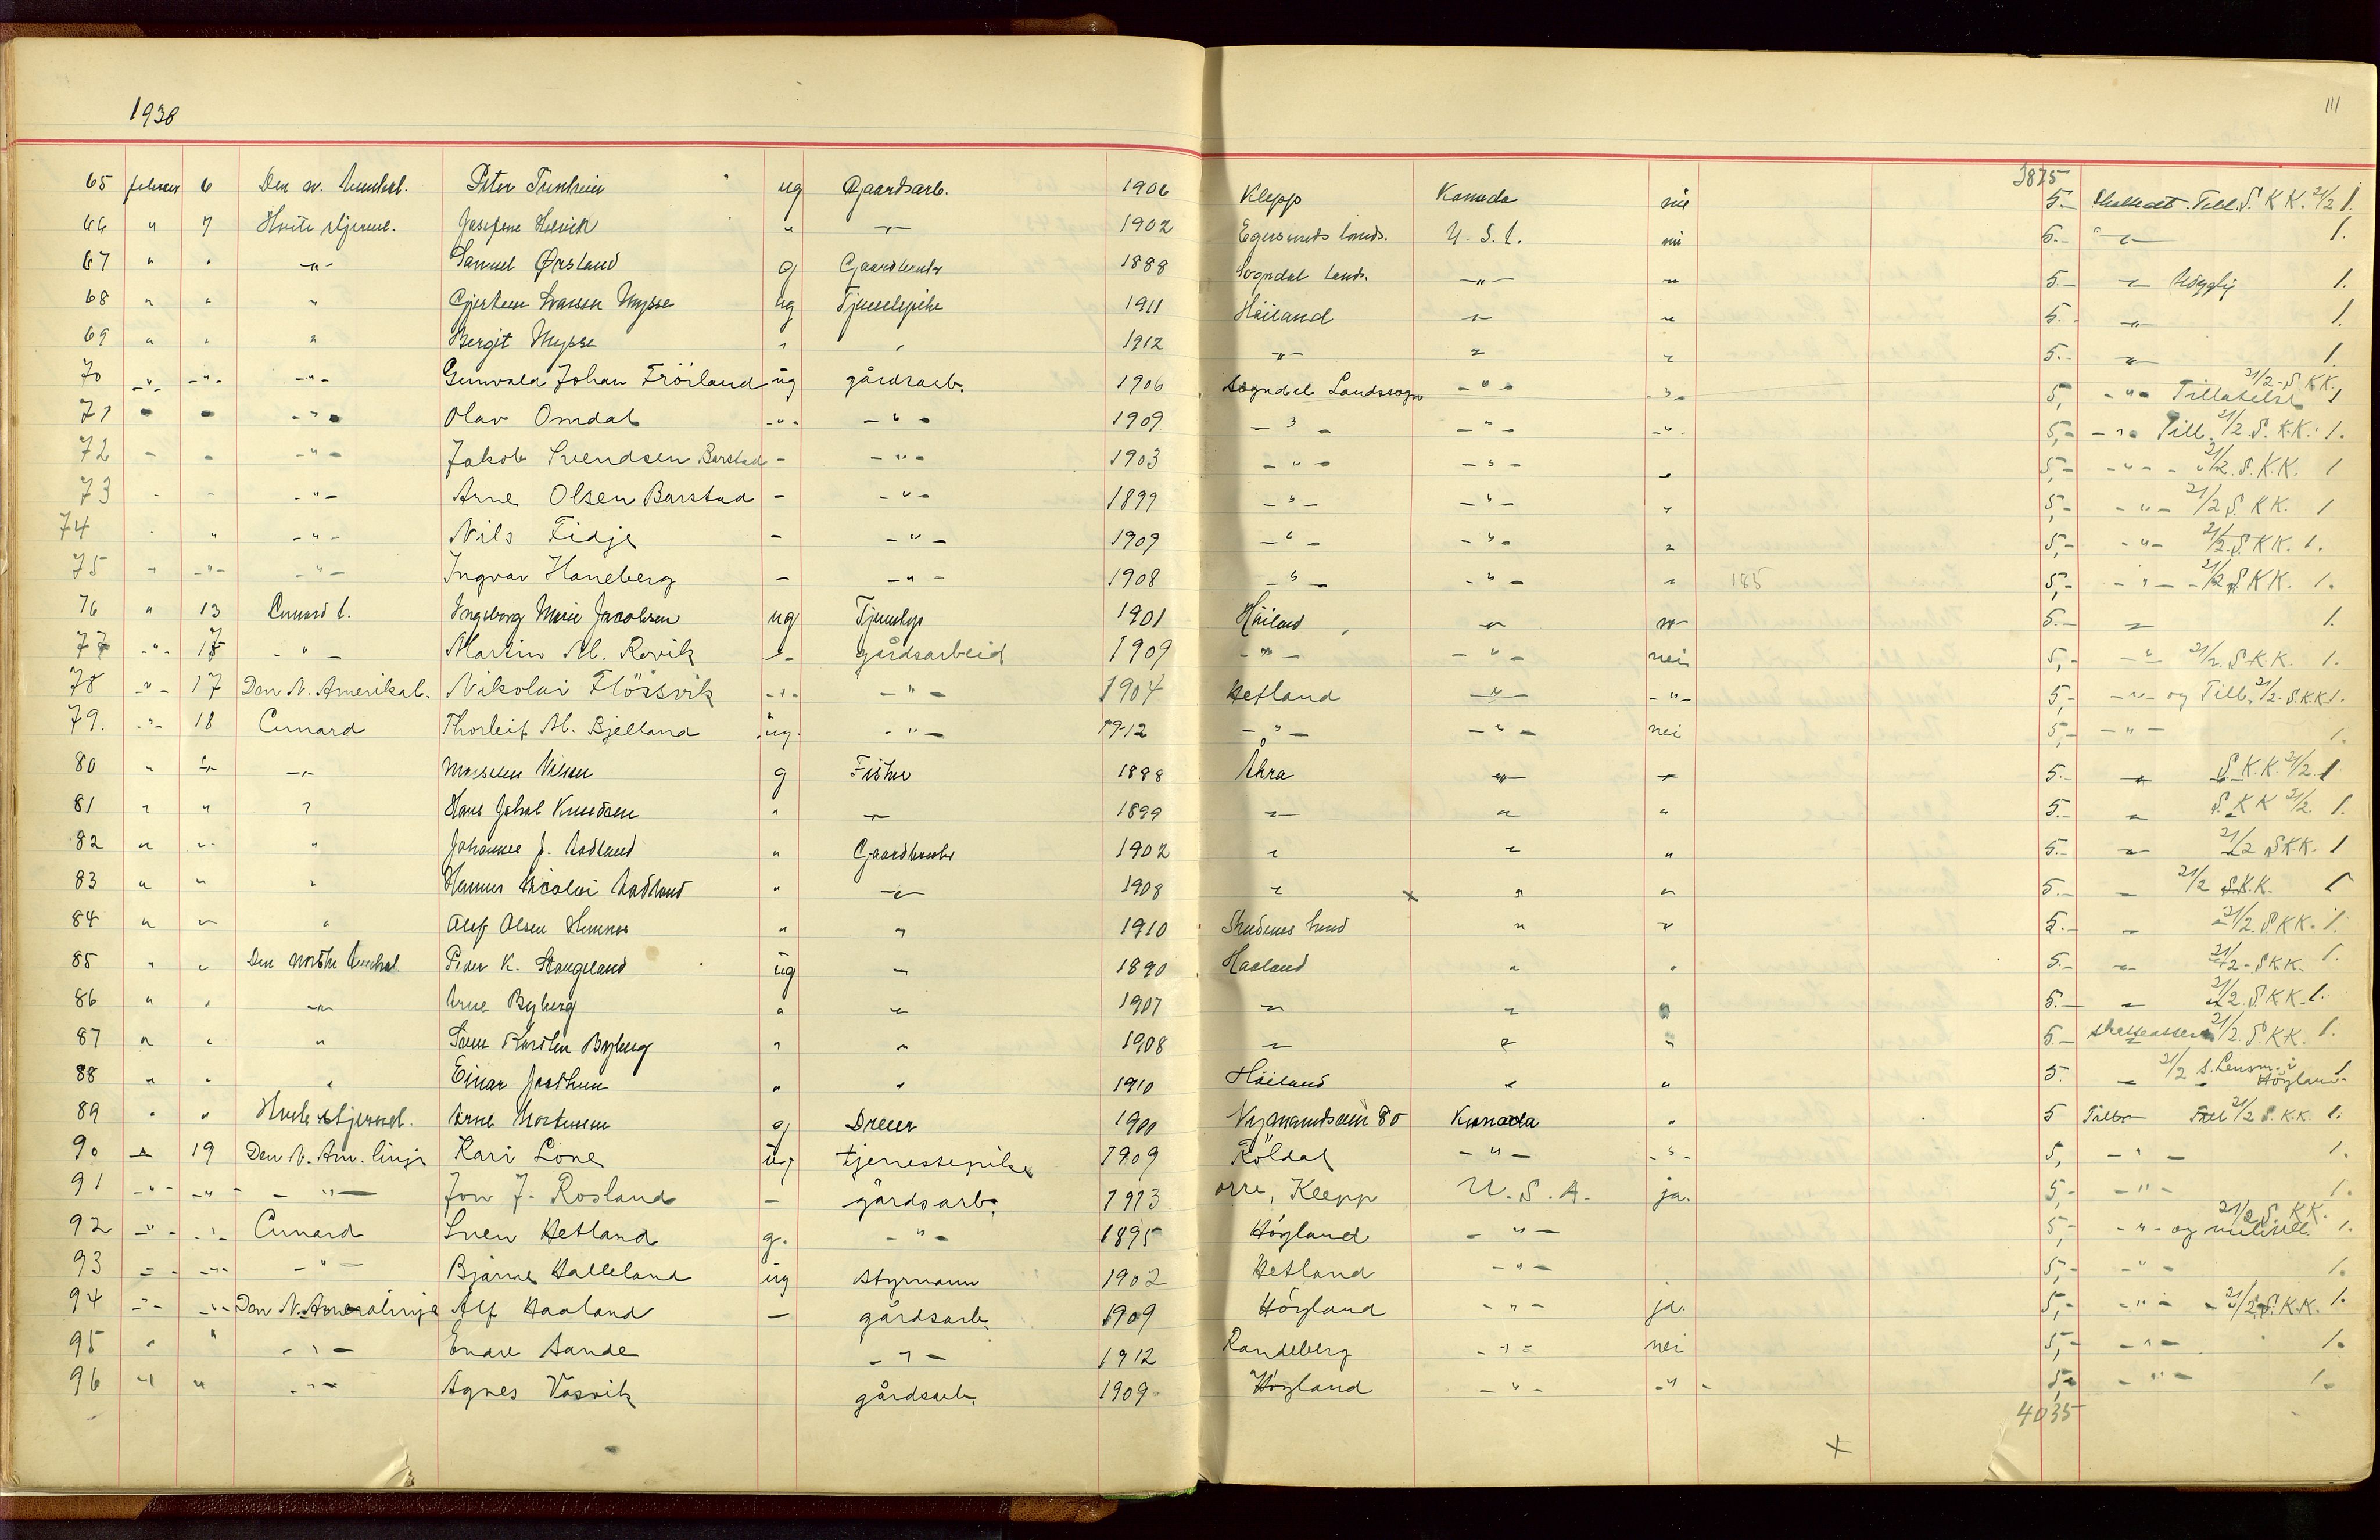 1930
111
3875
65 februar 6 Den n. Amerikal. Peter Tunheim ug Gaardsarb. 1906 Klepp Kanada nei 5.- Skatteatt. Till. S. K K. 21/2 1.
66 " 7 Hvite stjernel. Josefine " -"- 1902 Egersunds lands. U. S. A. nei 5.- -"- 1.
67 " " -"- Samuel Ørsland g Gaardbruker 1888 Sogndal lands. -"- " 5.- -"- 1.
68 " " " Gjertsen Mysse ug Tjenestepike 1911 Høiland -"- " 5.- -"- 1.
69 " " " Bergit Mysse " " 1912 -"- " " 5.- -"- 1.
70 -"- -"- -"- Gunvald Johan Fröiland ug gårdsarb. 1906 Sogndal Landssogn -"- -"- 5,- -"- Tillatelse 21/2 - S. KK. 1
71 " " -"- Olav Omdal -"- -"- 1909 -"- -"- -"- 5,- -"- Till. 21/2 S. K.K. 1.
72 - - -"- Jakob Svendsen Barstad - -"- 1903 -"- -"- " 5,- -"- - 21/2. S. K.K. 1
73 - - -"- Arne Olsen Barstad - -"- 1899 -"- -"- " 5,- -"- 21/2 S. KK. 1
74 " " -"- Nils Fidje - -"- 1909 -"- -"- " 5,- -"- 21/2. S. KK. 1.
75 " -"- -"- Ingvar Haneberg - -"- 1908 -"- -"- " 185 5,- -"- 21/2 S. KK. 1.
76 " 13 Cunard l. Ingeborg Marie Jacobsen ug Tjenestep 1901 Høiland " " 5.- " 1.
77 -"- 17 -"- Martin M. Rovik -"- gårdsarbeid 1909 -"- -"- nei 5,- -"- 21/2. S.KK. 1.
78 -"- 17 Den N. Amerikal. Nikolai Flössvik -"- -"- 1904 Hetland -"- -"- 5,- -"- og Till. 21/2. S.KK 1.
79. -"- 18 Cunard Thorleif M. Bjelland ug. -"- 1912 -"- -"- nei 5,- -"- 1.
80 " " -"- Nilsen g Fisker 1888 Åkra -"- " 5.- " S. K. K. 21/2. 1
81 " " " Hans Jakob Knudsen " -"- 1899 " " " 5.- " S. KK 21/2. 1.
82 " " " Johannes J. Aadland " Gaardbruker 1902 " " " 5.- " 21/2 SKK. 1
83 " " " Nicolai Aadland " -"- 1908 " x " " 5.- " 21/2 S.K.K. 1
84 " " " Olsen " " 1910 Skudenes land " " 5.- " 21/2. S.KK. 1.
85 " " Den norske Amerikal Peder K. Stangeland ug " 1890 Haaland " " 5.- " 21/2 - S.KK. 1.
86 " " -"- Arne Byberg " " 1907 " " " 5.- " 21/2. S.KK 1.
87 " " " Karsten Byberg " " 1908 " " " 5.- skatteattest 21/2. S. KK. 1.
88 " " " Einar " " 1910 Høiland " " 5. " 21/2 S. Lensm. i Høyland. 1
89 " " Hvite stjernel. Arne Mortensen g Dreier 1900 80 Kanada " 5 Till 21/2 S. K.K. 1.
90 " 19 Den N. Am. linje Kari Löne ug tjenestepike 1909 Röldal -"- -"- 5, -"- 1.
91 -"- -"- -"- Jon J. Rosland - gårdsarb. 1913 orre, Klepp U. S. A. ja. 5,- -"- 1.
92 -"- -"- Cunard Sven Hetland g. -"- 1895 Höyland -"- 5,- -"- og 21/2 S. KK. 1.
93 -"- -"- -"- Bjarne Halleland ug styrmann 1902 Hetland -"- 5,- -"- 1.
94 -"- -"- Den N. Ameralinje Alf Haaland - gårdsarb. 1909 Höyland -"- ja. 5,- -"- 21/2 S. K.K. 1.
95 " " -"- Endre Sande -"- 1912 Randeberg -"- nei 5,- -"- 1.
96 " " -"- Agnes Vasvik gårdsarb. 1909 Höyland -"- -"- 5,- -"- 1.
4035
x